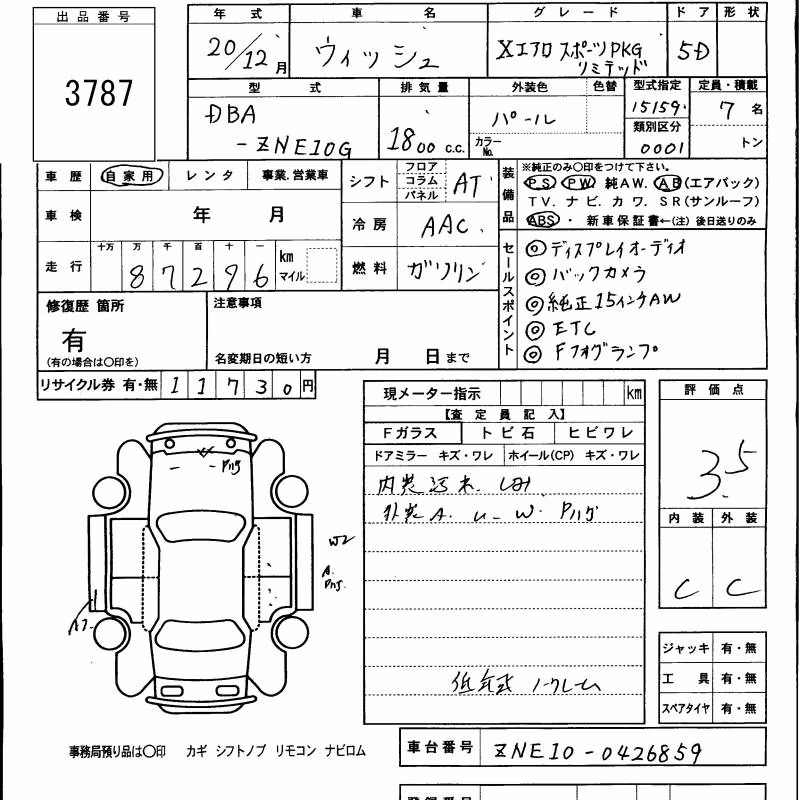 出品番号
3787
年式 車名 グレード ドア 形状
20/12月 ウィッシュ Xエアロスポーツ PKG リミテッド 5D
型式 排気量 外装色 色替 型式指定 定員・積載
DBA
-ZNE10G 1800 c.c. パール カラーNo. 15159 7名
類別区分
0001 トン
車歴 自家用 レンタ 事業.営業車
車検 年 月
走行 十万 万 千 百 十 一
87296 km マイル
シフト フロア コラム パネル AT
冷房 AAC
燃料 ガソリン
装備品
※純正のみ○印をつけて下さい。
PS PW 純AW. AB(エアバック)
TV. ナビ. カワ. SR(サンルーフ)
ABS・ 新車保証書←(注) 後日送りのみ
セールスポイント
◎ディスプレイオーディオ
◎バックカメラ
◎純正15インチAW
◎ETC
◎Fフォグランプ
修復歴 箇所
有
(有の場合は○印を)
注意事項
名変期日の短い方 月 日まで
リサイクル券 有・無 11730円
現メーター指示 km
【査定員記入】
Fガラス トビ石 ヒビワレ
ドアミラー キズ・ワレ ホイール(CP) キズ・ワレ
外装 A. U- W. Pハゲ
低年式 ノークレーム
評価点
3.5
内装 外装
C C
Pハゲ
W2
A.
Pハゲ.
ジャッキ 有・無
工具 有・無
スペアタイヤ 有・無
事務局預り品は○印 カギ シフトノブ リモコン ナビロム
車台番号 ZNE10-0426859